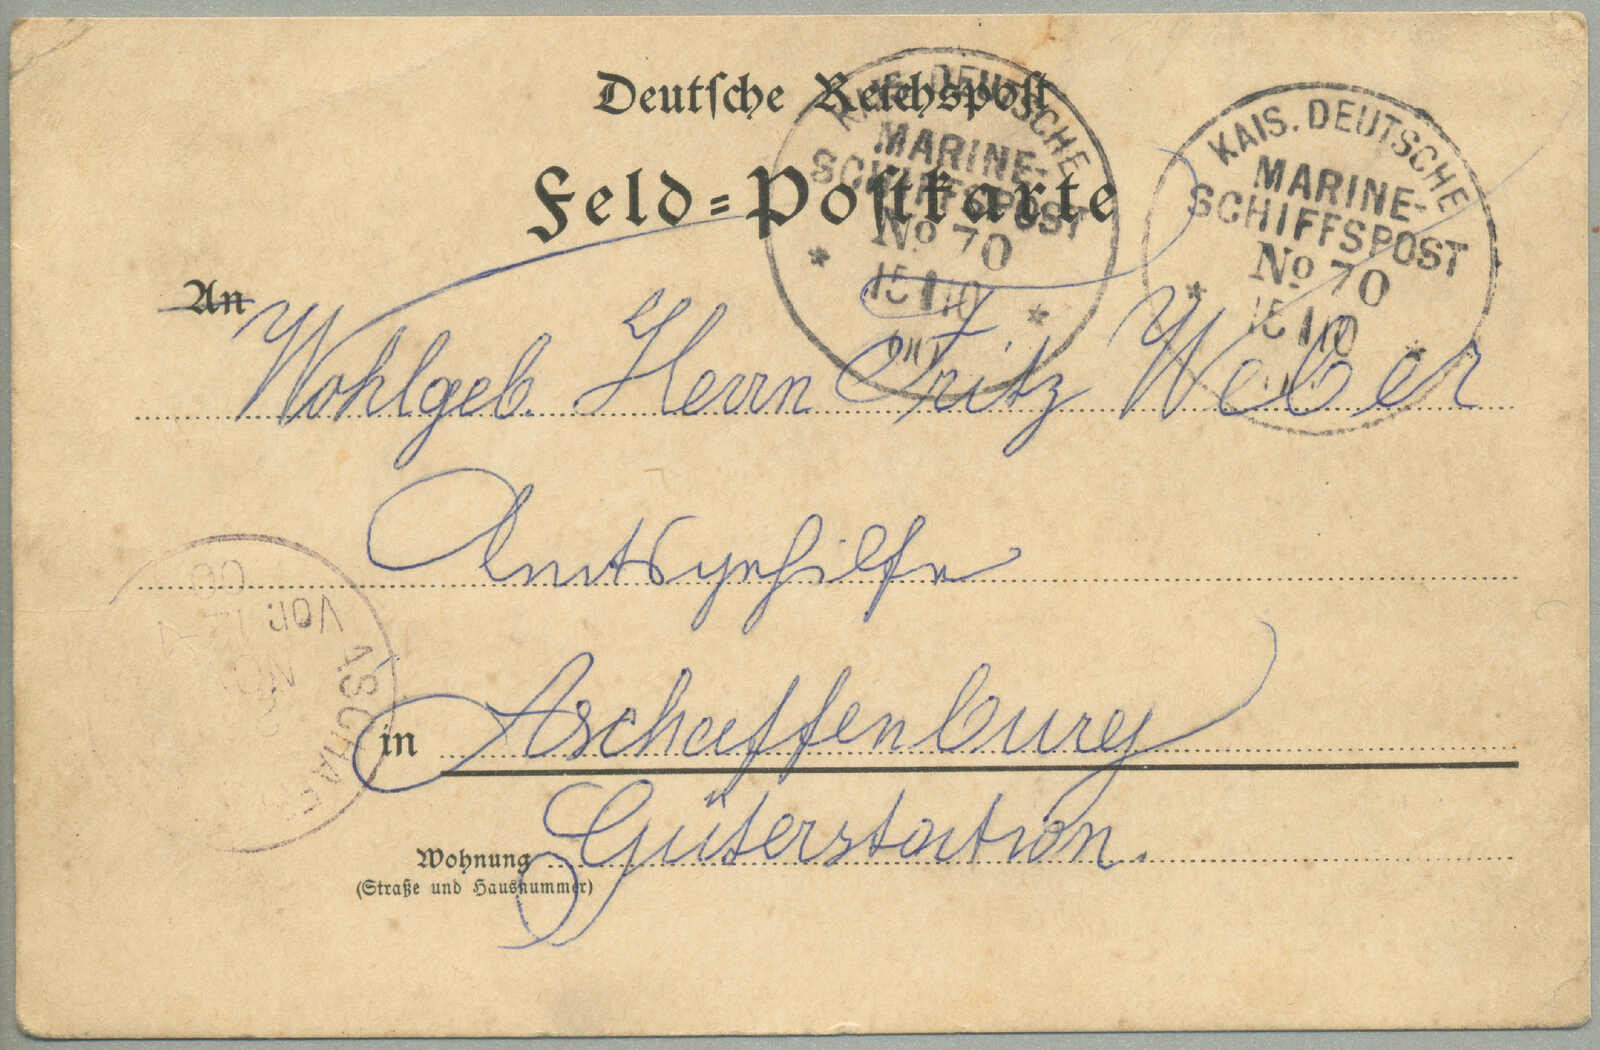 Deutsche Reichspost
Feld-Postkarte
KAIS. DEUTSCHE
MARINE-
SCHIFFSPOST
No 70
15 10
KAIS. DEUTSCHE
MARINE-
SCHIFFSPOST
No 70
15 10
An
Wohlgeb. Herrn Fritz Weber
Amtsgehilfe
in Aschaffenburg
Güterstation.
Wohnung
(Straße und Hausnummer)
Vor.
ASCHAF